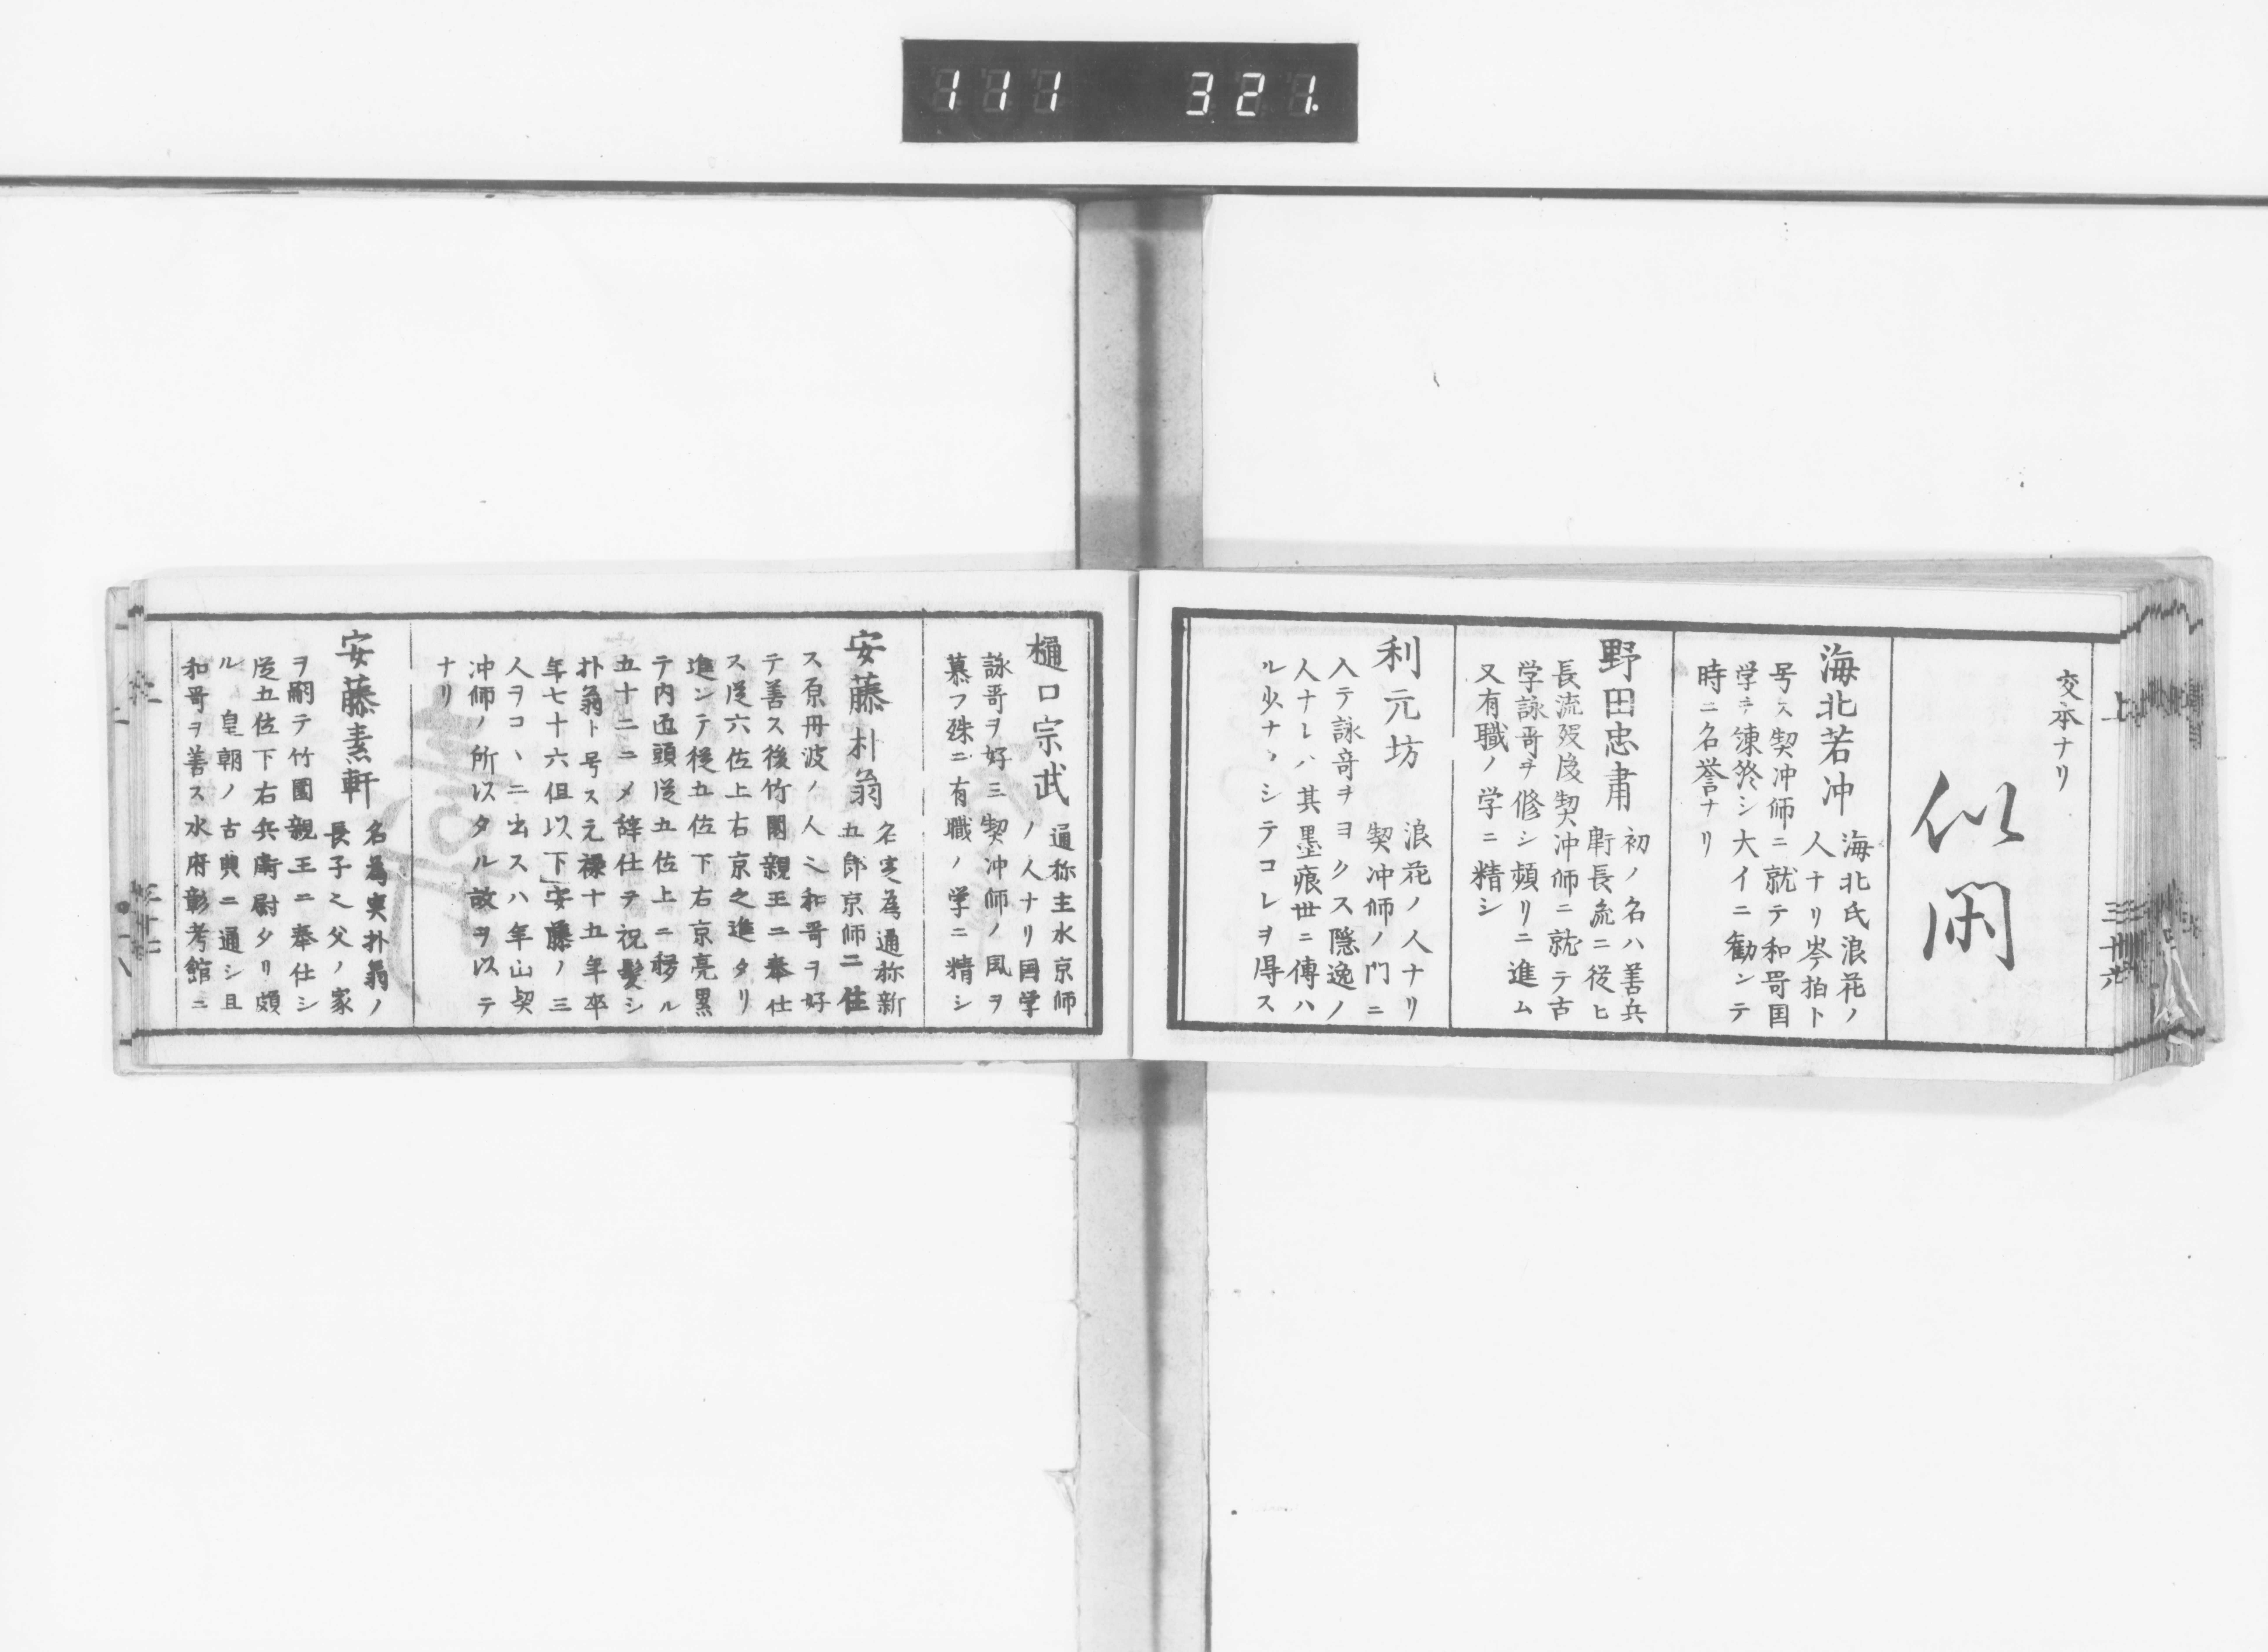 111 321.
交本ナリ
似閑
海北若冲
海北氏浪花ノ
人ナリ岑拍ト
号ス契冲師ニ就テ和哥国
学ヲ湅シ大イニ勧ンテ
時ニ名誉ナリ
野田忠肅
初ノ名ハ善兵
衛長流ニ従ヒ
長流歿後契冲師ニ就テ古
学詠哥ヲ修シ頻リニ進ム
又有職ノ学ニ精シ
利元坊
浪花ノ人ナリ
契冲師ノ門ニ
入テ詠哥ヲヨクス隠逸ノ
人ナレハ其墨痕世ニ傳ハ
ル少ナヽシテコレヲ得ス
樋口宗武
通称主水京師
ノ人ナリ国学
詠哥ヲ好ミ契冲師ノ風ヲ
慕フ殊ニ有職ノ学ニ精シ
安藤朴翁
名定為通称新
五郎京師ニ住
ス原丹波ノ人也和哥ヲ好
テ善ス後竹園親王ニ奉仕
ス従六位上右京之進タリ
進ンテ従五位下右京亮累
テ内匠頭従五位上ニ移ル
五十二ニメ辞仕テ祝髪シ
朴翁ト号ス元禄十五年卒
年七十六但以下安藤ノ三
人ヲコヽニ出スハ年山契
冲師ノ所以タル故ヲ以テ
ナリ
安藤素軒
名為実朴翁ノ
長子也父ノ家
ヲ嗣テ竹園親王ニ奉仕シ
従五位下右兵衛尉タリ頗
ル 皇朝ノ古典ニ通シ且
和哥ヲ善ス水府彰考館ニ